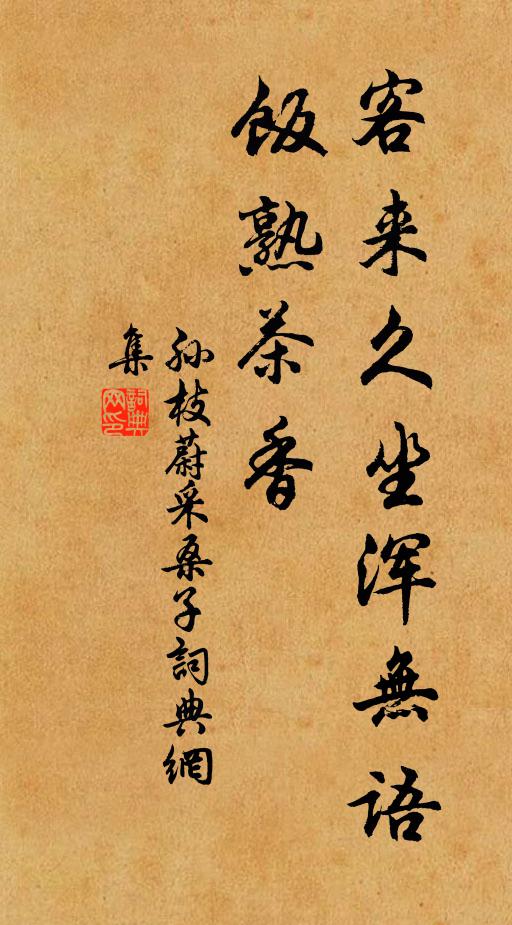 客来久坐浑無語
飯熟茶香
孙枝蔚采桑子詞典網
集
詞典
网印